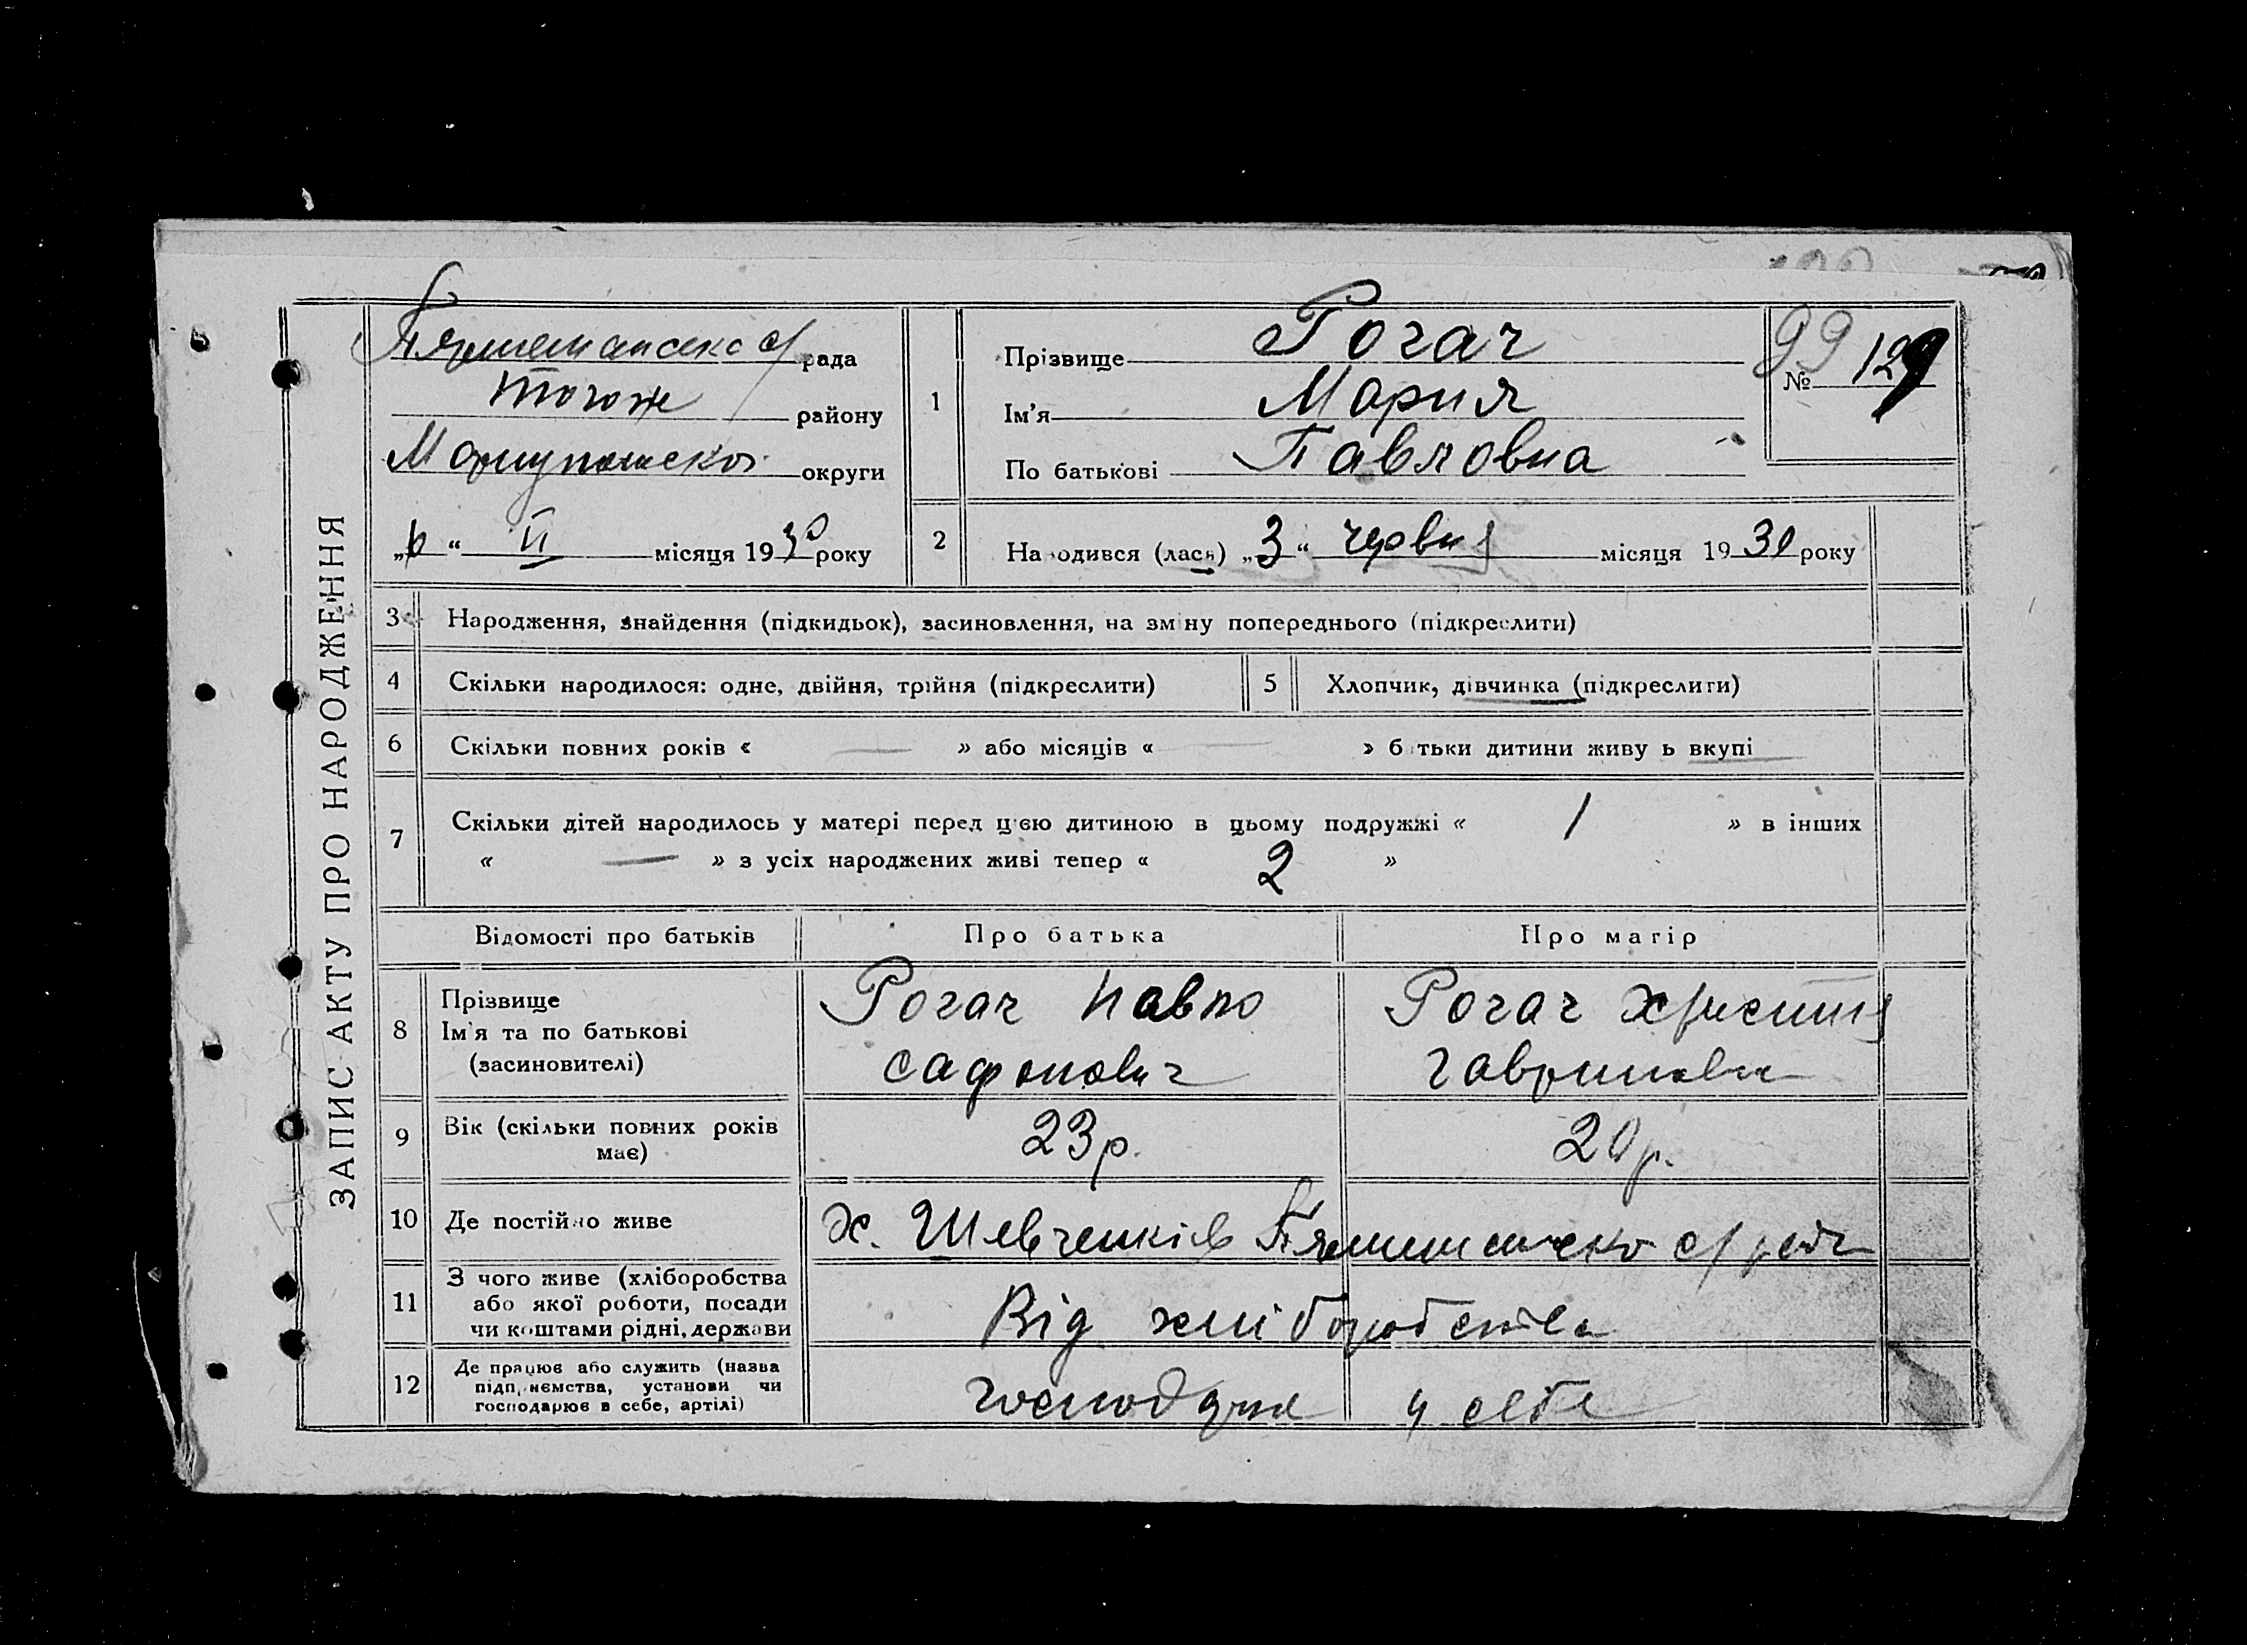 ЗАПИС АКТУ ПРО НАРОДЖЕННЯ
с/рада
тогож району
округи
„6“ VI місяця 1930 року
1
Прізвище Рогач
Ім’я Мария
По батькові Павловна
99
№ 129
2
Народився (лася) „3“ червня місяця 1930 року
3 Народження, знайдення (підкидьок), засиновлення, на зміну попереднього (підкреслити)
4 Скільки народилося: одне, двійня, трійня (підкреслити)
5 Хлопчик, дівчинка (підкреслити)
6 Скільки повних років « — » або місяців « — » батьки дитини живуть вкупі
7 Скільки дітей народилось у матері перед цією дитиною в цьому подружжі « 1 » в інших
« — » з усіх народжених живі тепер « 2 »
Відомості про батьків
Про батька
Про матір
8 Прізвище
Ім’я та по батькові
(засиновителі)
Рогач Павло
Сафонович
Рогач Христина
Гавриловна
9 Вік (скільки повних років
має)
23 р.
20 р.
10 Де постійно живе
х. Шевченків с/ради
11 З чого живе (хліборобства
або якої роботи, посади
чи коштами рідні, держави
Від хліборобства
12 Де працює або служить (назва
підприємства, установи чи
господарює в себе, артілі)
господарює у себе